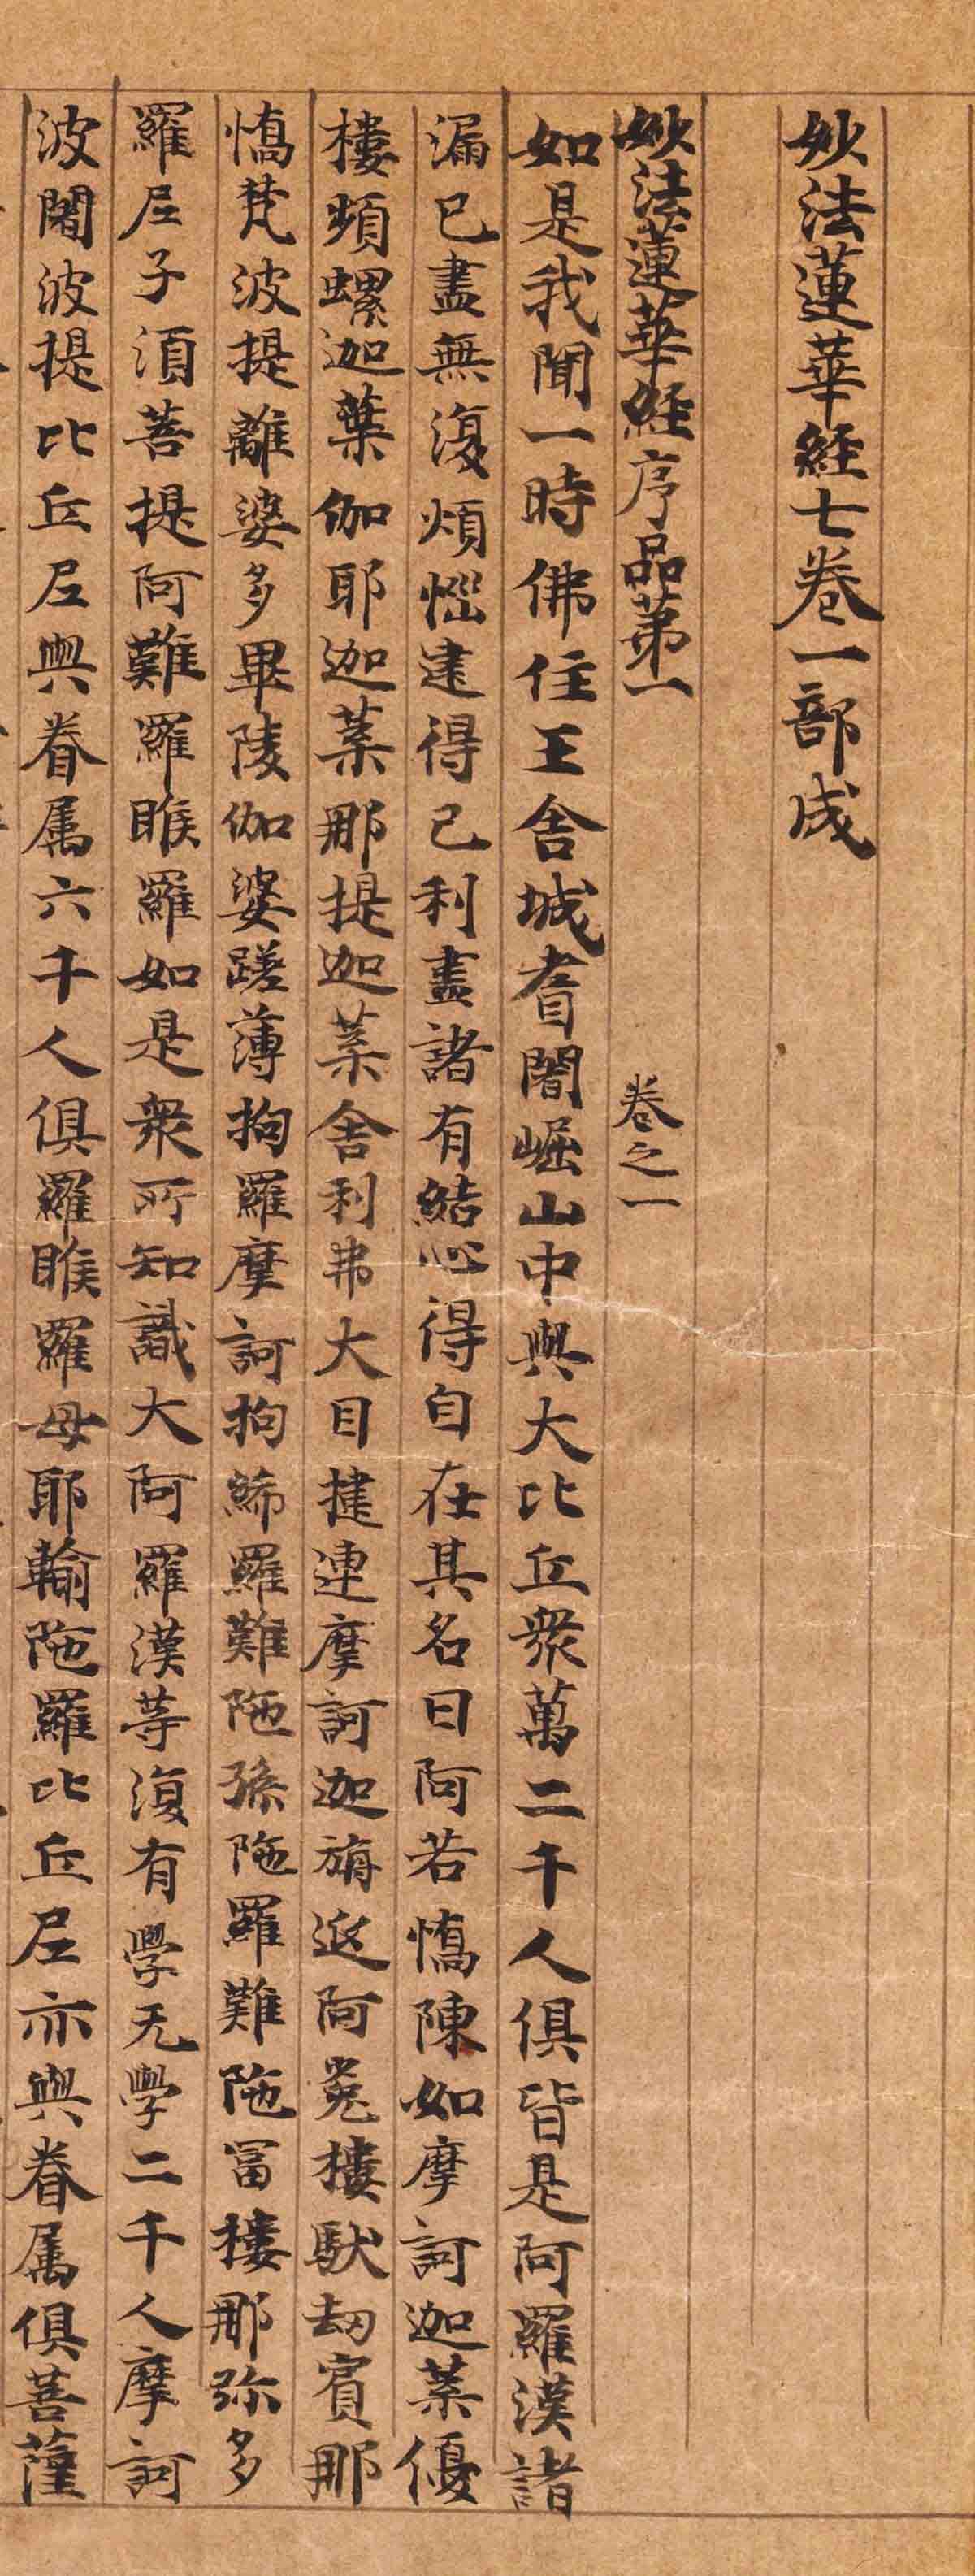 妙法蓮華經七卷一部成
妙法蓮華經序品第一 卷之一
如是我聞一時佛住王舍城耆闍崛山中與大比丘衆萬二千人俱皆是阿羅漢諸
漏已盡無復煩惱逮得己利盡諸有結心得自在其名曰阿若憍陳如摩訶迦葉優
樓頻螺迦葉伽耶迦葉那提迦葉舍利弗大目揵連摩訶迦旃延阿㝹樓馱劫賓那
憍梵波提離婆多畢陵伽婆蹉薄拘羅摩訶拘絺羅難陁孫陁羅難陁冨樓那弥多
羅尼子湏菩提阿難羅睺羅如是衆所知識大阿羅漢等復有學无學二千人摩訶
波闍波提比丘尼與眷属六千人俱羅睺羅母耶輸陁羅比丘尼亦與眷属俱菩薩